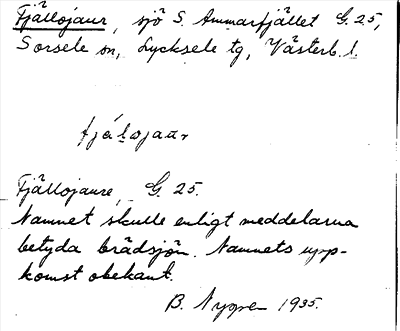 Fjällojaur, sjö S. Ammarfjället G. 25,
Sorsele sn, Lycksele tg, Västerb. l.
Fjällojaure, G. 25.
Namnet skulle enligt meddelarna
betyda brädsjön. Namnets upp-
komst obekant.
B. Nygren 1935.